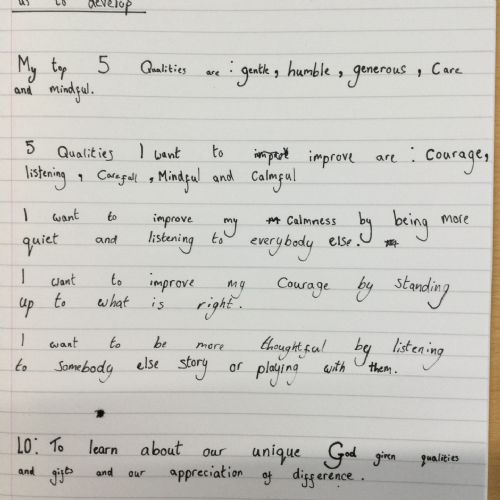 us to develop
My top 5 Qualities are : gentle, humble, generous, Care
and mindful.
5 Qualities I want to improve are : Courage,
listening, Carefull, Mindful and Calmful
I want to improve my Calmness by being more
quiet and listening to everybody else.
I want to improve my Courage by standing
up to what is right.
I want to be more thoughtful by listening
to somebody else story or playing with them.
LO: To learn about our unique God given qualities
and gifts and our appreciation of difference.